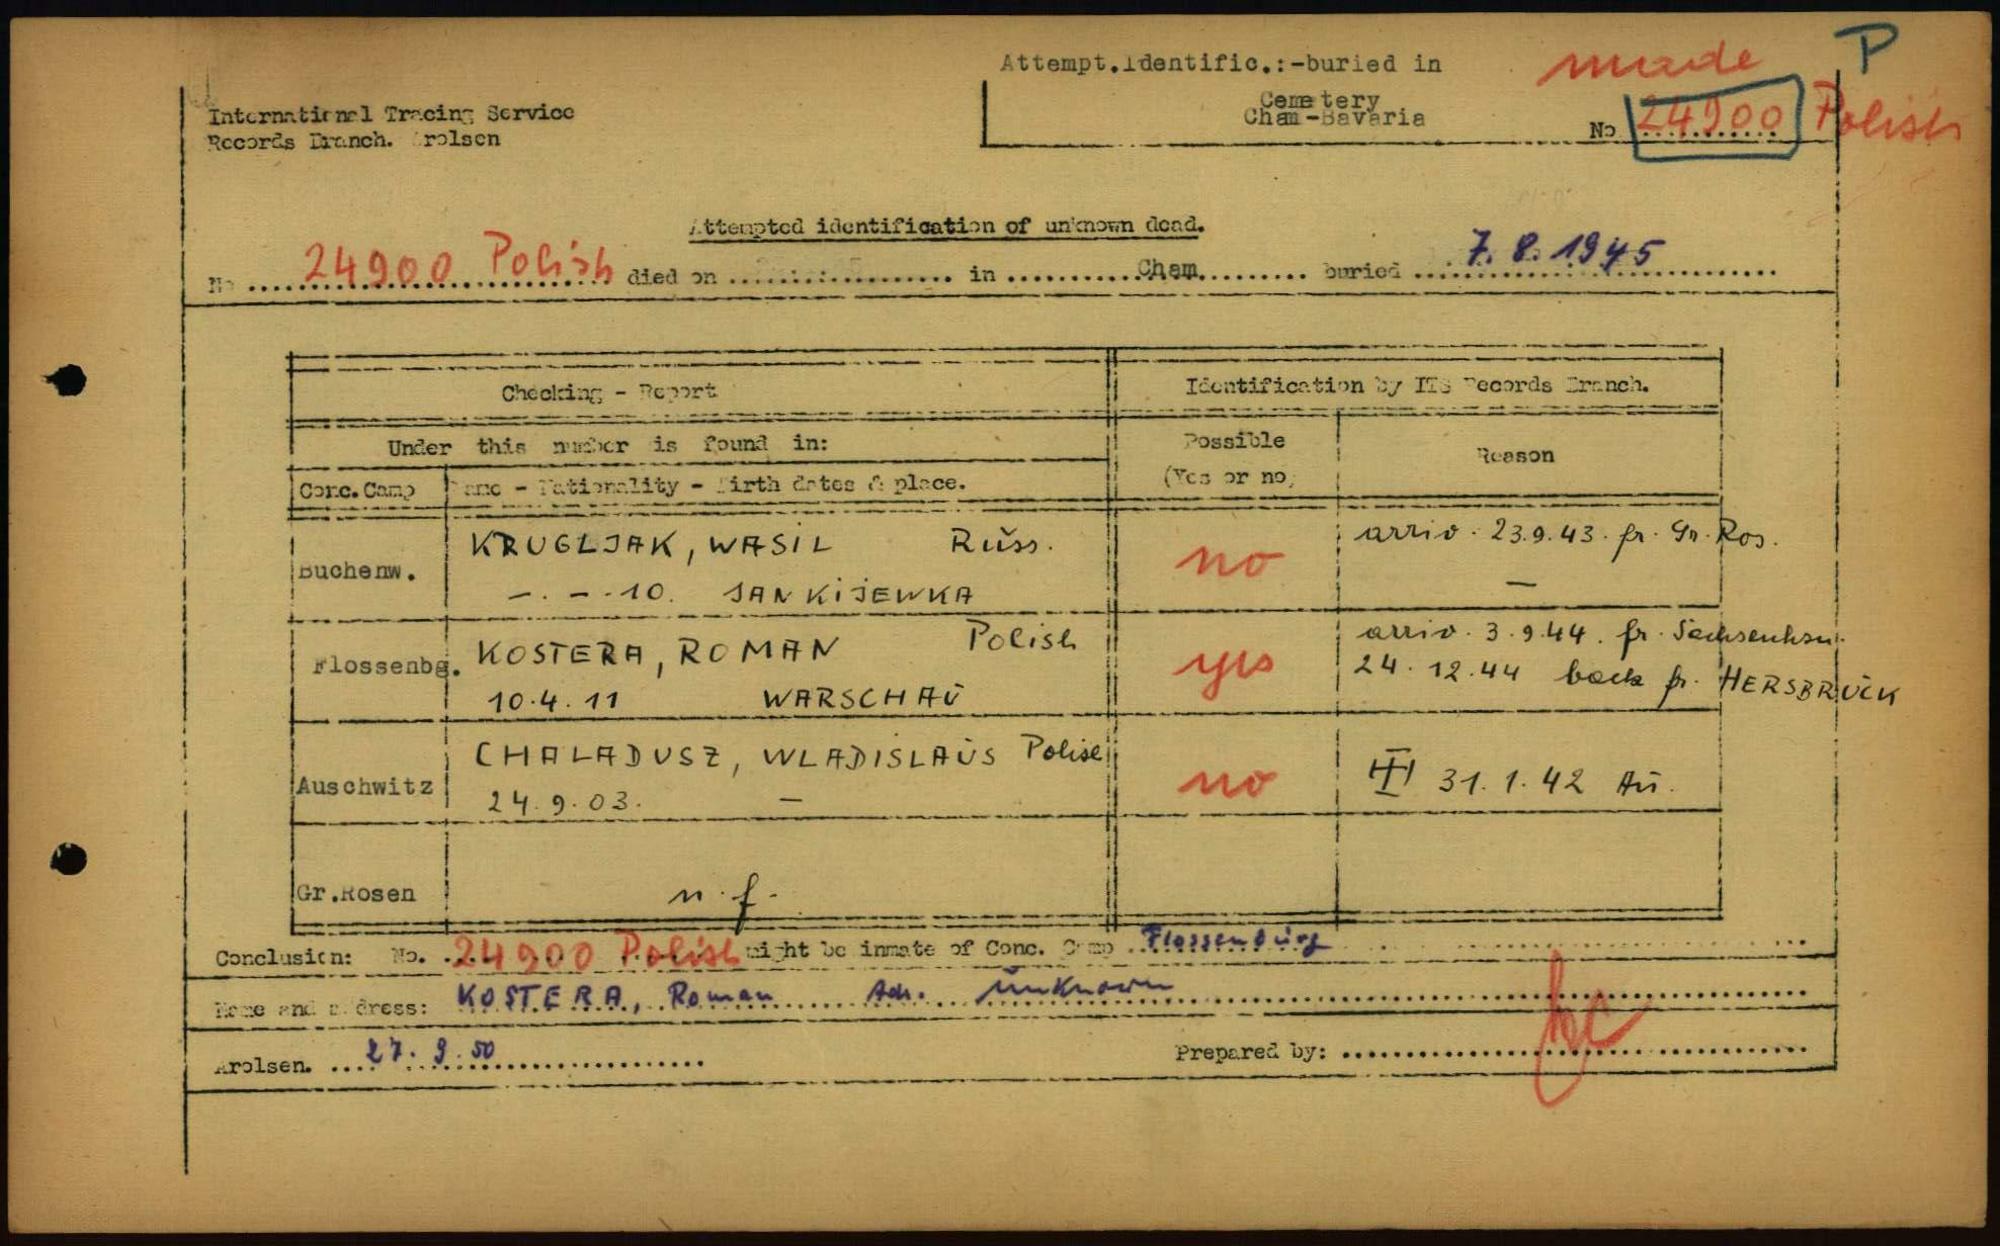 Attempt.Identific.:-buried in
made P
International Tracing Service
Records Branch. Arolsen
Cemetery
Cham-Bavaria
No 24900 Polish
Attempted identification of unknown dead.
No 24900 Polish died on ........ in ........ Cham ........ buried 7.8.1945
Checking - Report
Identification by ITS Records Branch.
Under this number is found in:
Possible
(Yes or no)
Reason
Conc.Camp Name - Nationality - Birth dates & place.
Buchenw. KRUGLJAK, WASIL Russ. no arriv. 23.9.43. fr. Gr. Ros.
-. -.10. JANKIJEWKA –
Flossenbg. KOSTERA, ROMAN Polish yes arriv. 3.9.44. fr. Sachsenhsn.
10.4.11 WARSCHAU 24.12.44 back fr. HERSBRUCK
Auschwitz CHALADUSZ, WLADISLAUS Polish no 31.1.42 Au.
24.9.03. –
Gr.Rosen n.f.
Conclusion: No. 24900 Polish might be inmate of Conc. Camp Flossenburg
Name and address: KOSTERA, Roman Adr. unknown
Arolsen. 27.9.50
Prepared by: ........